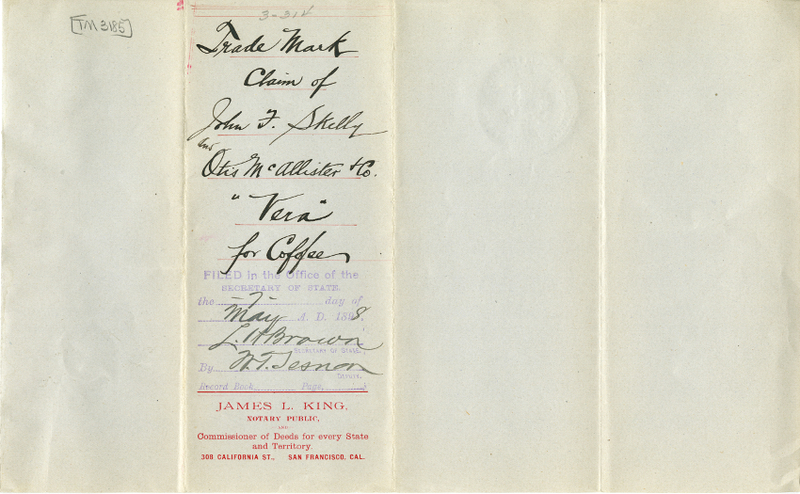 [TM 3185]
3-214
Trade Mark
Claim of
John F. Skelly
and
Otis McAllister & Co.
"Vera"
for Coffee
FILED in the Office of the
SECRETARY OF STATE,
the 7 day of
May A. D. 1898.
L. H. Brown
SECRETARY OF STATE.
By
DEPUTY.
Record Book, Page,
JAMES L. KING,
NOTARY PUBLIC,
AND
Commissioner of Deeds for every State
and Territory.
308 CALIFORNIA ST., SAN FRANCISCO, CAL.